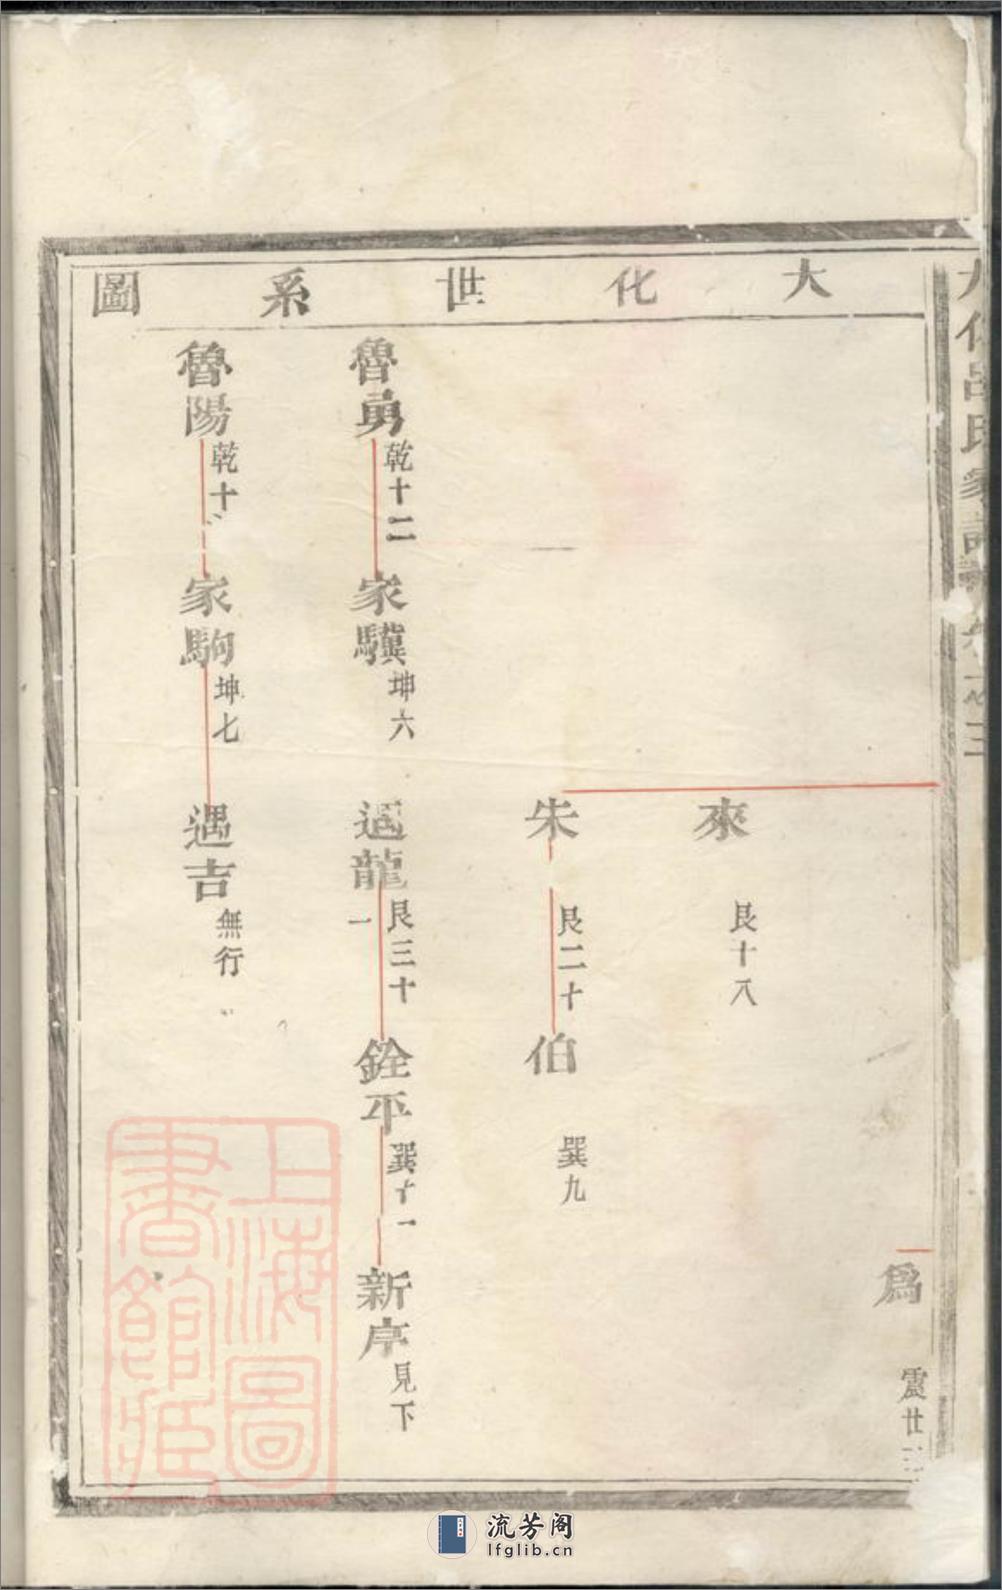 大化呂氏家譜卷之三
大化世系圖
爲 震廿
來 艮十八
朱 艮二十
伯 巽九
魯勇 乾十二
家驥 坤六
遇龍 艮三十一
銓平 巽十一
新序 見下
魯陽 乾十
家駒 坤七
遇吉 無行
上海圖書館藏
流芳阁
lfglib.cn